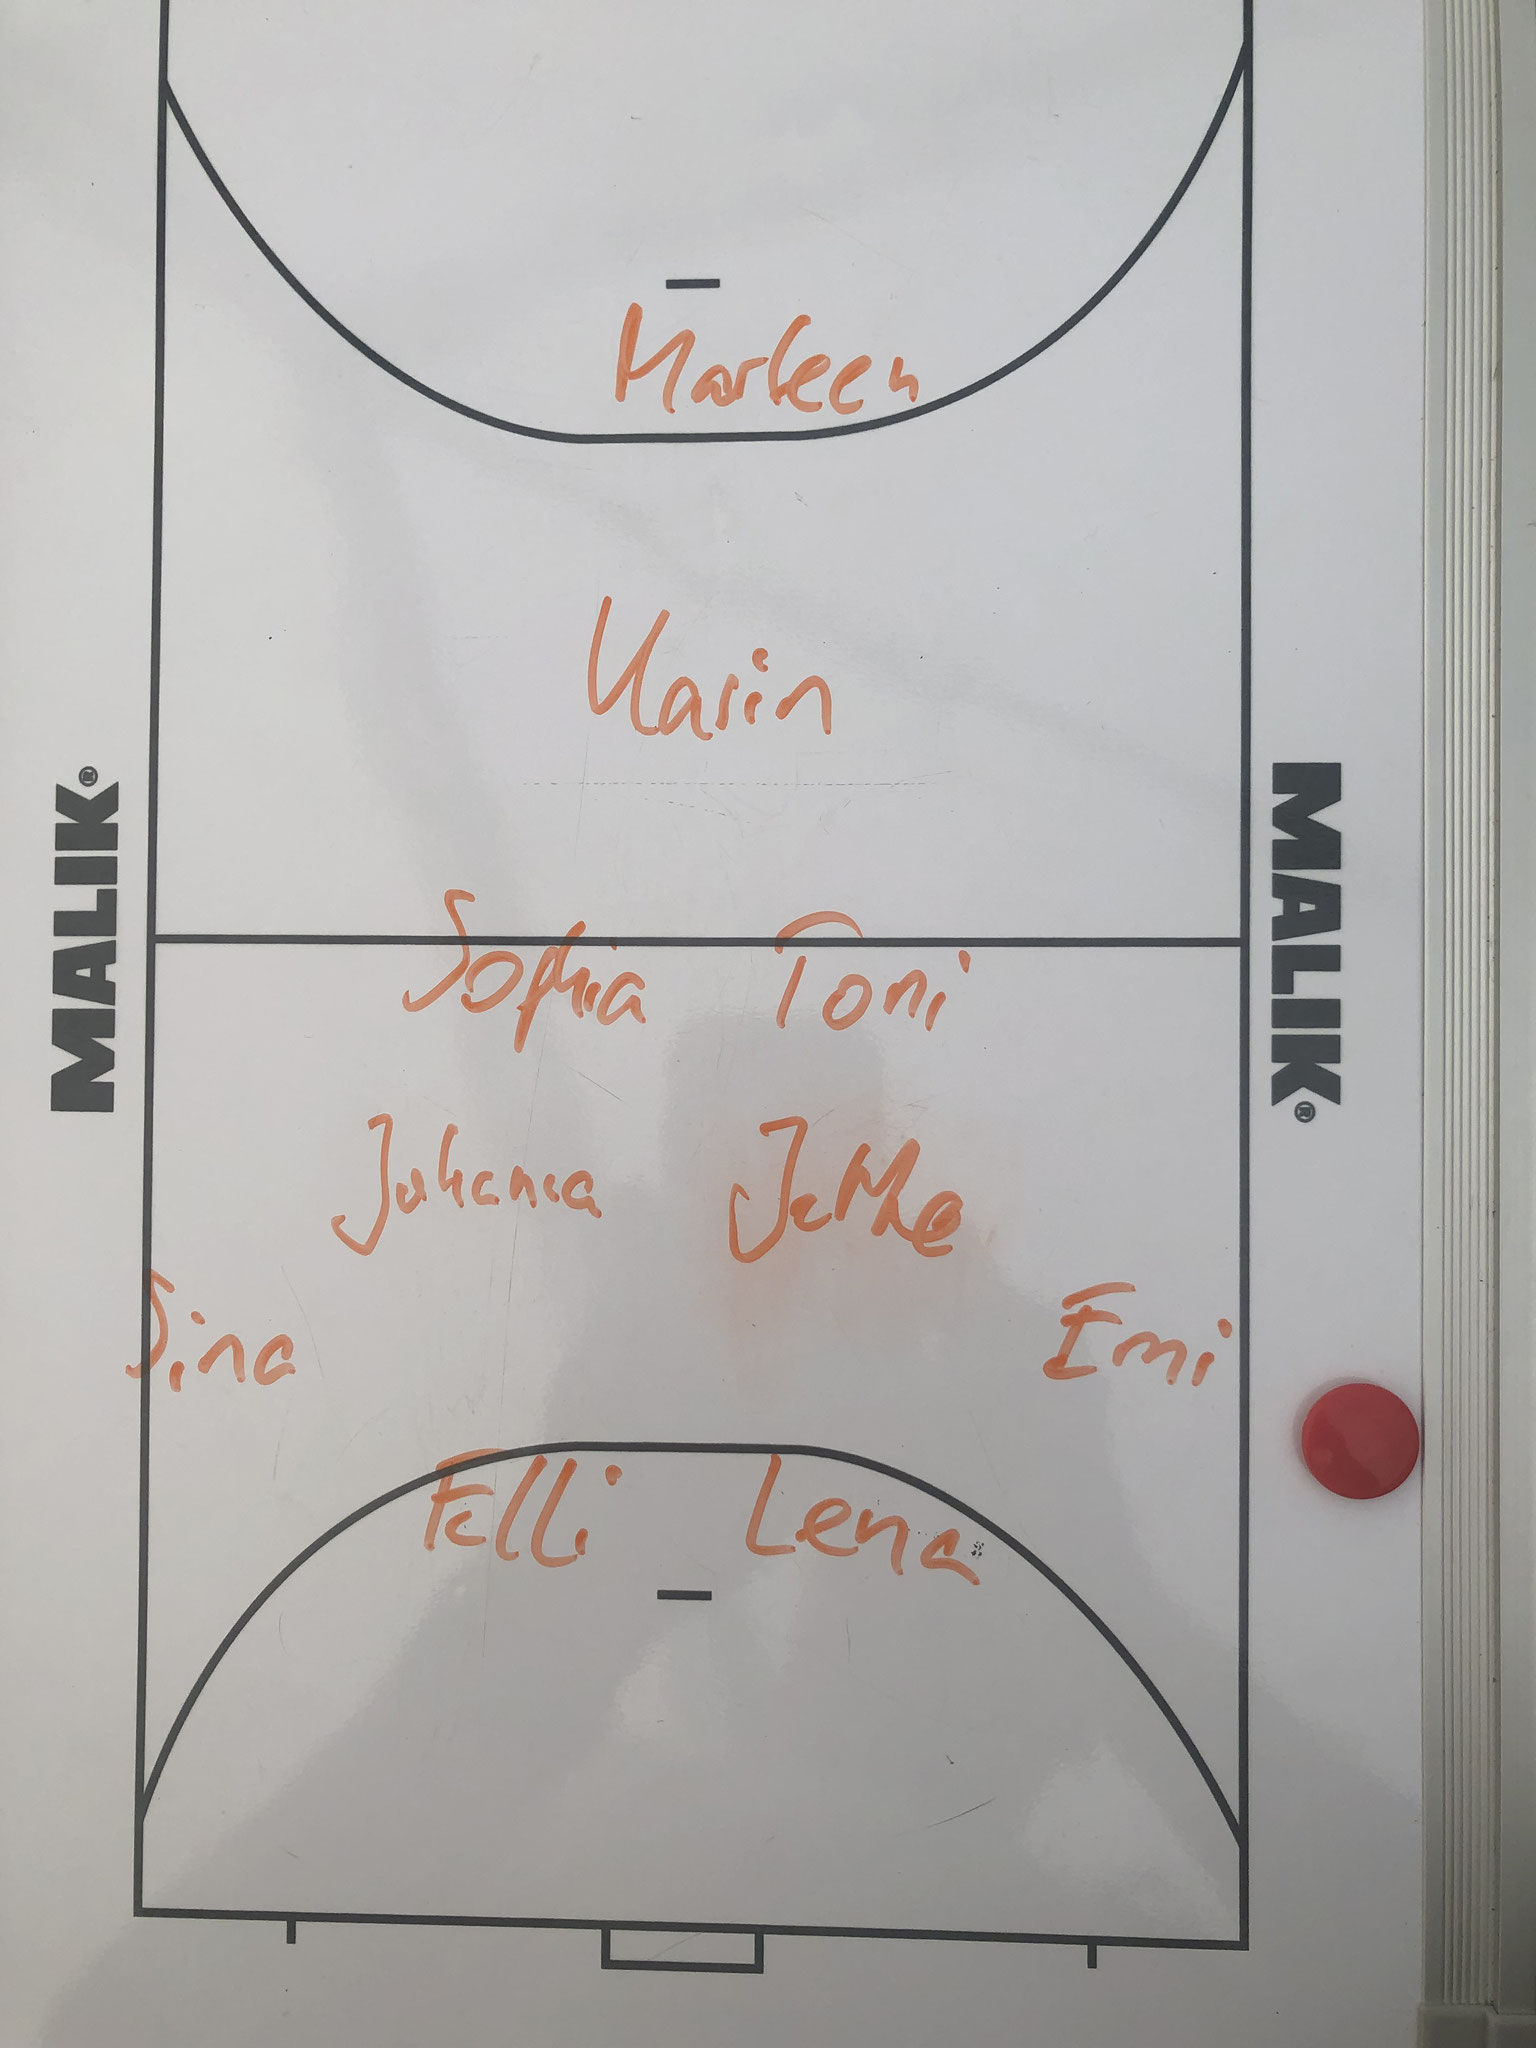 Marleen
Karin
MALIK®
MALIK®
Sophia Toni
Johanna Jette
Sina Emi
Felli Lena